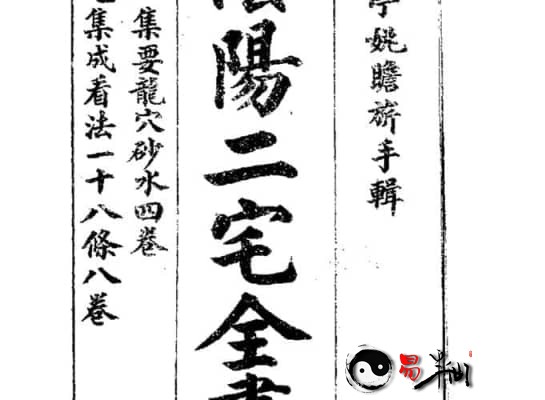 姚瞻旂手輯
陰陽二宅全書
集要龍穴砂水四卷
集成看法一十八條八卷
易半仙